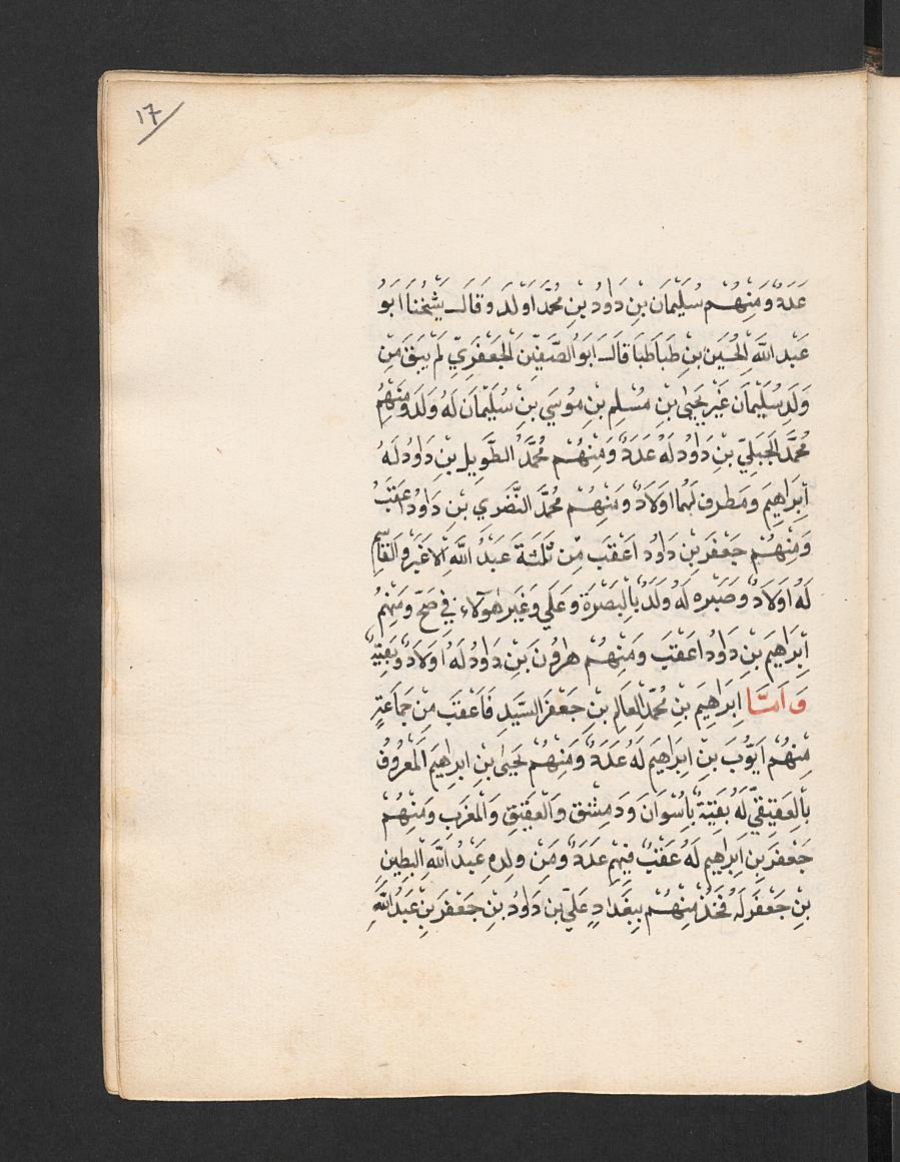 17
عَدَدٌ وَمِنْهُم سُلَيْمَان بْنِ دَاوُد بْنِ مُحَمَّد اَولَدَ وَقَالَ شَيْخُنَا اَبُو
عَبْد اللَّهِ الْحُسَيْن بْنِ طَبَاطَبَا قَالَ اَبُو الصَّيْفِيْن الْجَعْفَرِيّ لَمْ يَبْقَ مِنْ
وَلَدِ سُلَيْمَان غَيْر يَحْيَى بْنِ مُسْلِم بْنِ مُوسَي بْنِ سُلَيْمَان لَهُ وَلَد وَمِنْهُمْ
مُحَمَّد الْجَبَلِيّ بْنِ دَاوُد لَهُ عَدَدٌ وَمِنْهُم مُحَمَّدُ الطَّوِيل بْنِ دَاوُد لَهُ
اِبْرَاهِيمَ وَمُطرف لَهُمَا اَوْلَادٌ وَمِنْهُم مُحَمَّد النَّضَرِي بْنِ دَاوُد اَعْقَبُ
وَمِنْهُمْ جَعْفَر بْنِ دَاوُد اَعْقَب مِن ثَلثَة عَبْدُ اللَّهِ الاغَرّ وَالْقَاسِم
لَهُ اَوْلَادٌ وَصَبره لَهُ وَلَدٌ بِالْبَصْرَة وَعَلي وَغَيْر هَولَاءِ فِي صَحّ وَمِنْهُمْ
اِبْرَاهِيم بْنِ دَاوُد اَعْقَب وَمِنْهُمْ هٰرُونَ بْنِ دَاوُد لَهُ اَوْلَادٌ وَبَقِيَّةٌ
وَاَمَّا اِبْرَاهِيمَ بْن مُحَمَّد الْعَالِم بْنِ جَعْفَر السَّيّدِ فَاَعْقَبَ مِنْ جَمَاعَةٍ
مِنْهُمْ اَيُّوبَ بْنِ اِبْرَاهِيمَ لَهُ عَدَدٌ وَمِنْهُمْ يَحْيَى بْنِ اِبْرَاهِيمَ الْمَعْرُوفُ
بِالْعَقِيقِيّ لَهُ بَقِيَّةٌ بِاُسْوَانَ وَدَمِشْقَ وَالْعَقِيقِ وَالْمَغْرَبِ وَمِنْهُمْ
جَعْفَر بْنِ اِبْرَاهِيم لَهُ عَقبٌ فِيهِمْ عَدَدٌ وَمِنْ وَلده عَبْدُ اللَّهِ الْبَطِين
بْنِ جَعْفَر لَهُ فَخَذٌ مِنْهُمْ بِبَغْدَادِ عَلِيّ بْن دَاوُد بْنِ جَعْفَر بْنِ عَبْدُ اللَّهِ